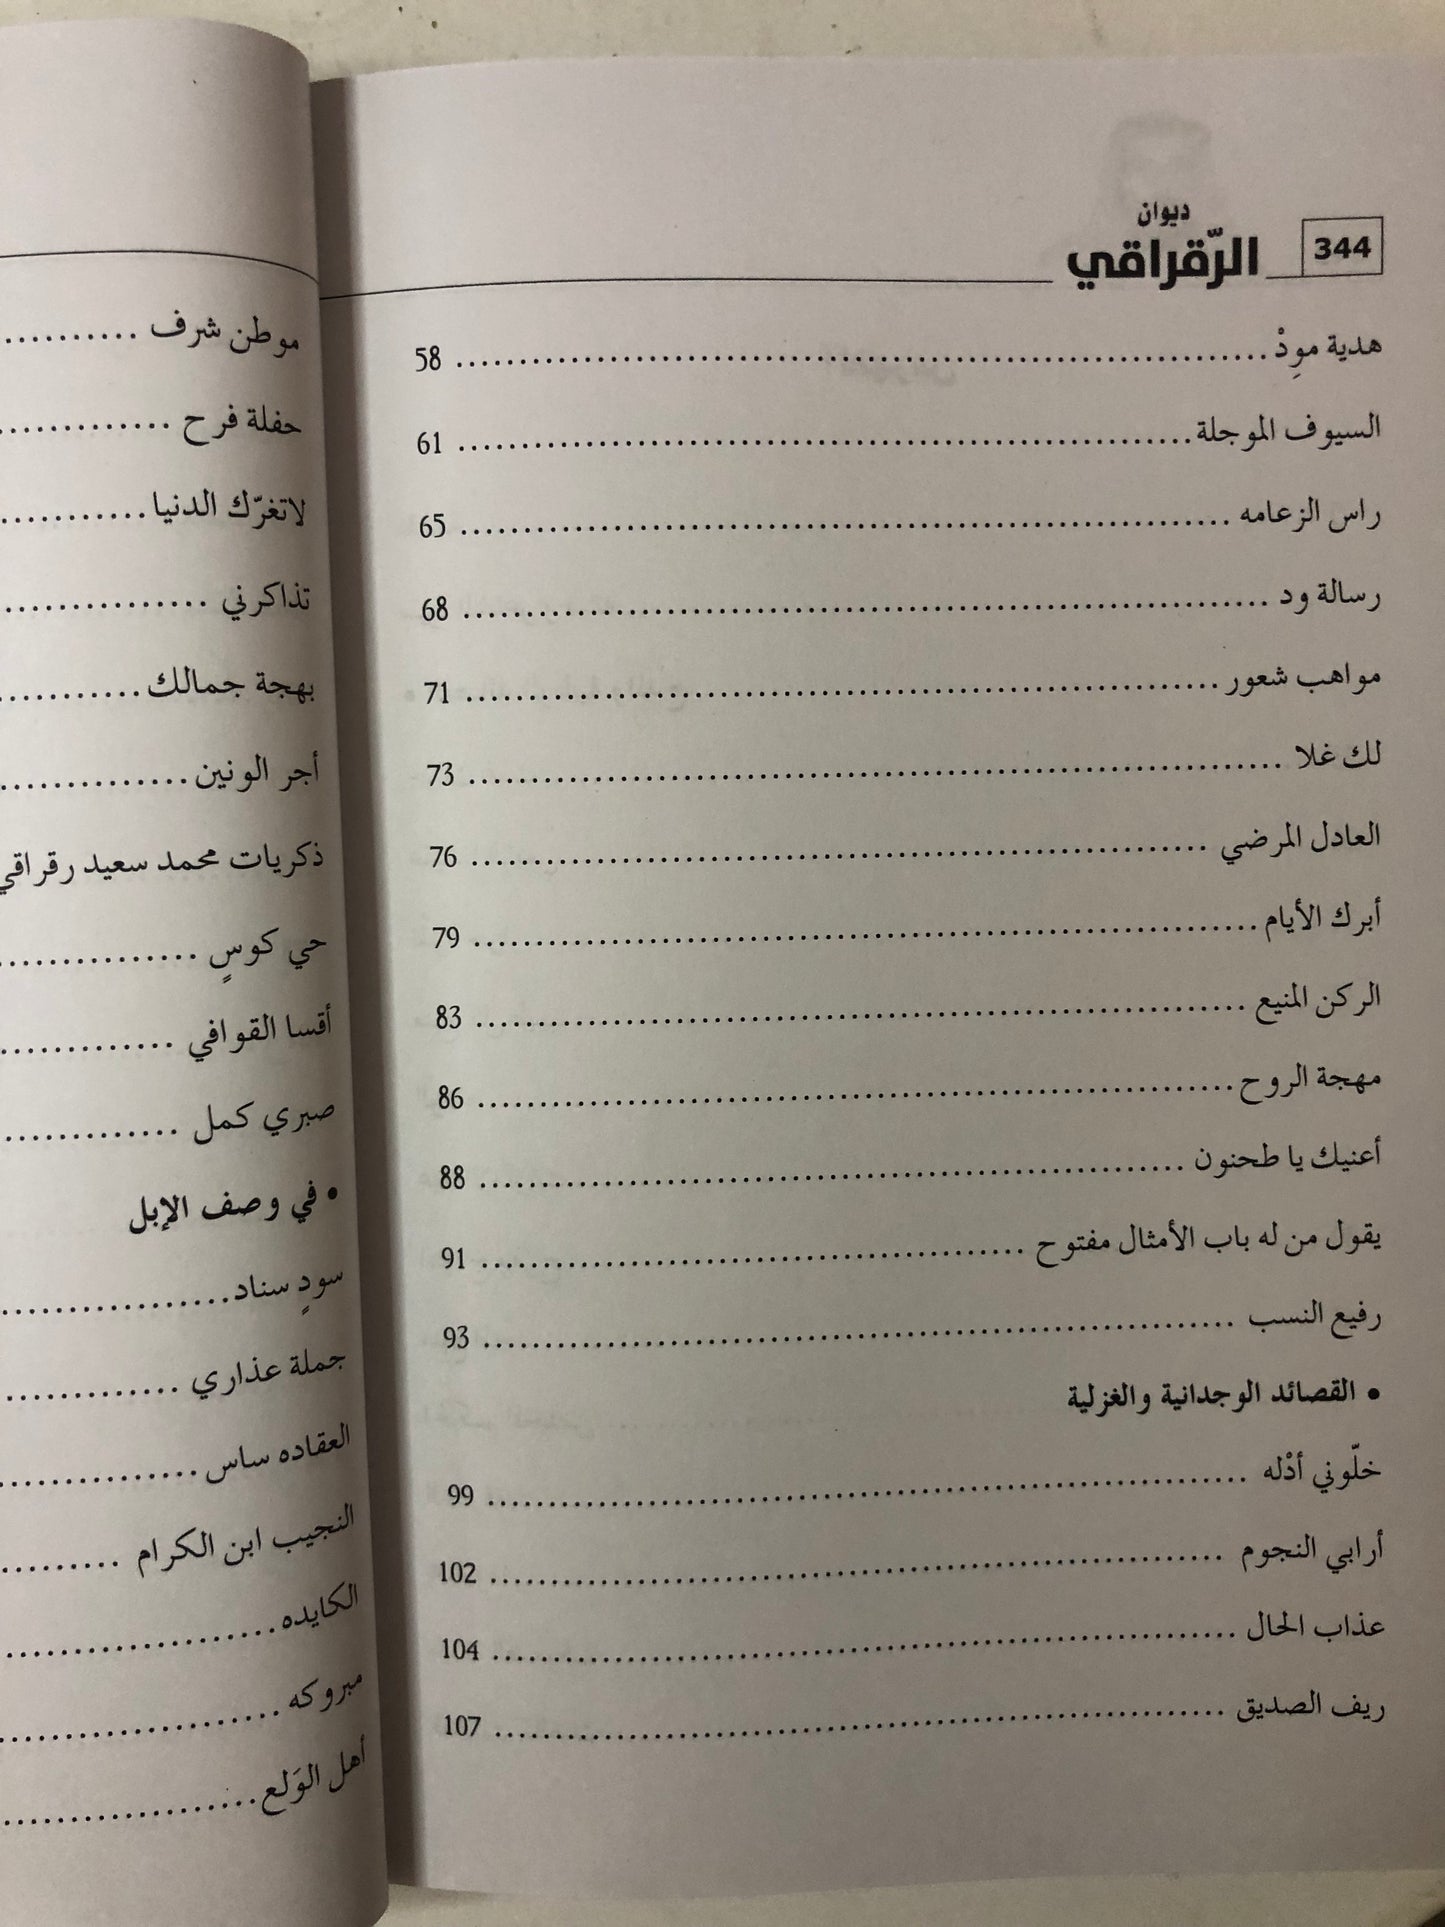 344
ديوان
الرّقراقي
هدية موِدْ ........ 58
السيوف الموجلة ........ 61
راس الزعامه ........ 65
رسالة ود ........ 68
مواهب شعور ........ 71
لك غلا ........ 73
العادل المرضي ........ 76
أبرك الأيام ........ 79
الركن المنيع ........ 83
مهجة الروح ........ 86
أعنيك يا طحنون ........ 88
يقول من له باب الأمثال مفتوح ........ 91
رفيع النسب ........ 93
• القصائد الوجدانية والغزلية
خلّوني أدْله ........ 99
أرابي النجوم ........ 102
عذاب الحال ........ 104
ريف الصديق ........ 107
موطن شرف ........
حفلة فرح ........
لاتغرّك الدنيا ........
تذاكرني ........
بهجة جمالك ........
أجر الونين ........
ذكريات محمد سعيد رقراقي
حي كوسٍ ........
أقسا القوافي ........
صبري كمل ........
• في وصف الإبل
سودٍ سناد ........
جملة عذاري ........
العقاده ساس ........
النجيب ابن الكرام ........
الكايده ........
مبروكه ........
أهل الوَلع ........